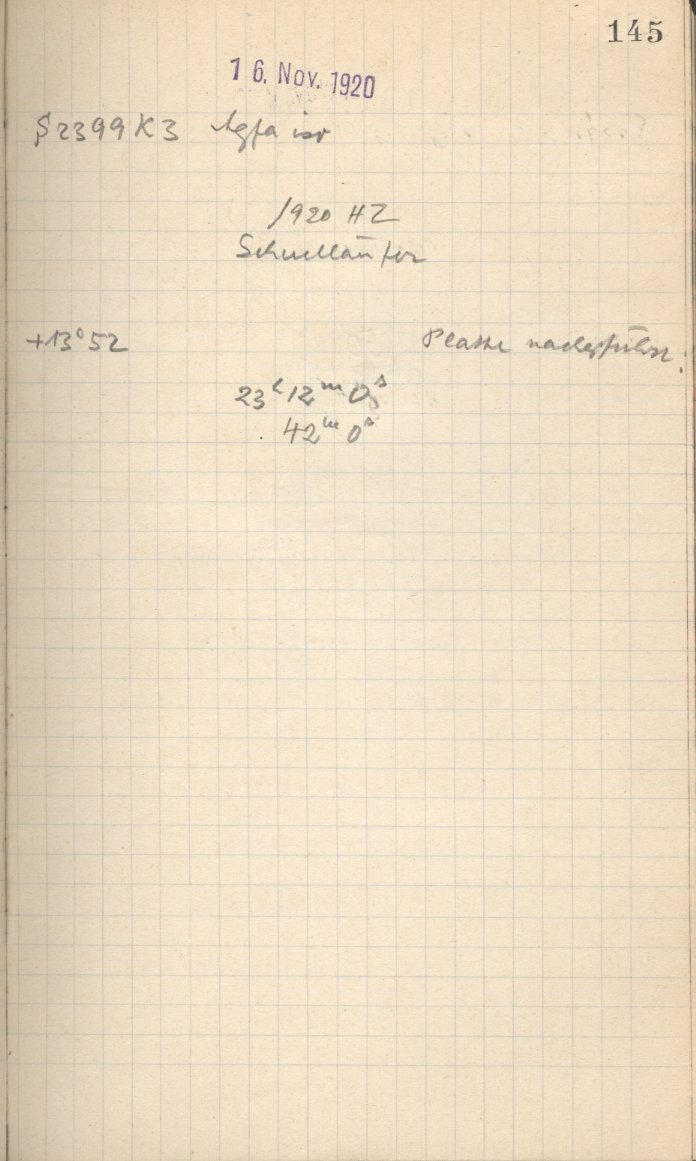 145
16. Nov. 1920
S2399 K3 Agfa iso
1920 HZ
Schnelläufer
+13°52 Platte nachgeführt.
23h 12m 0s
42m 0s